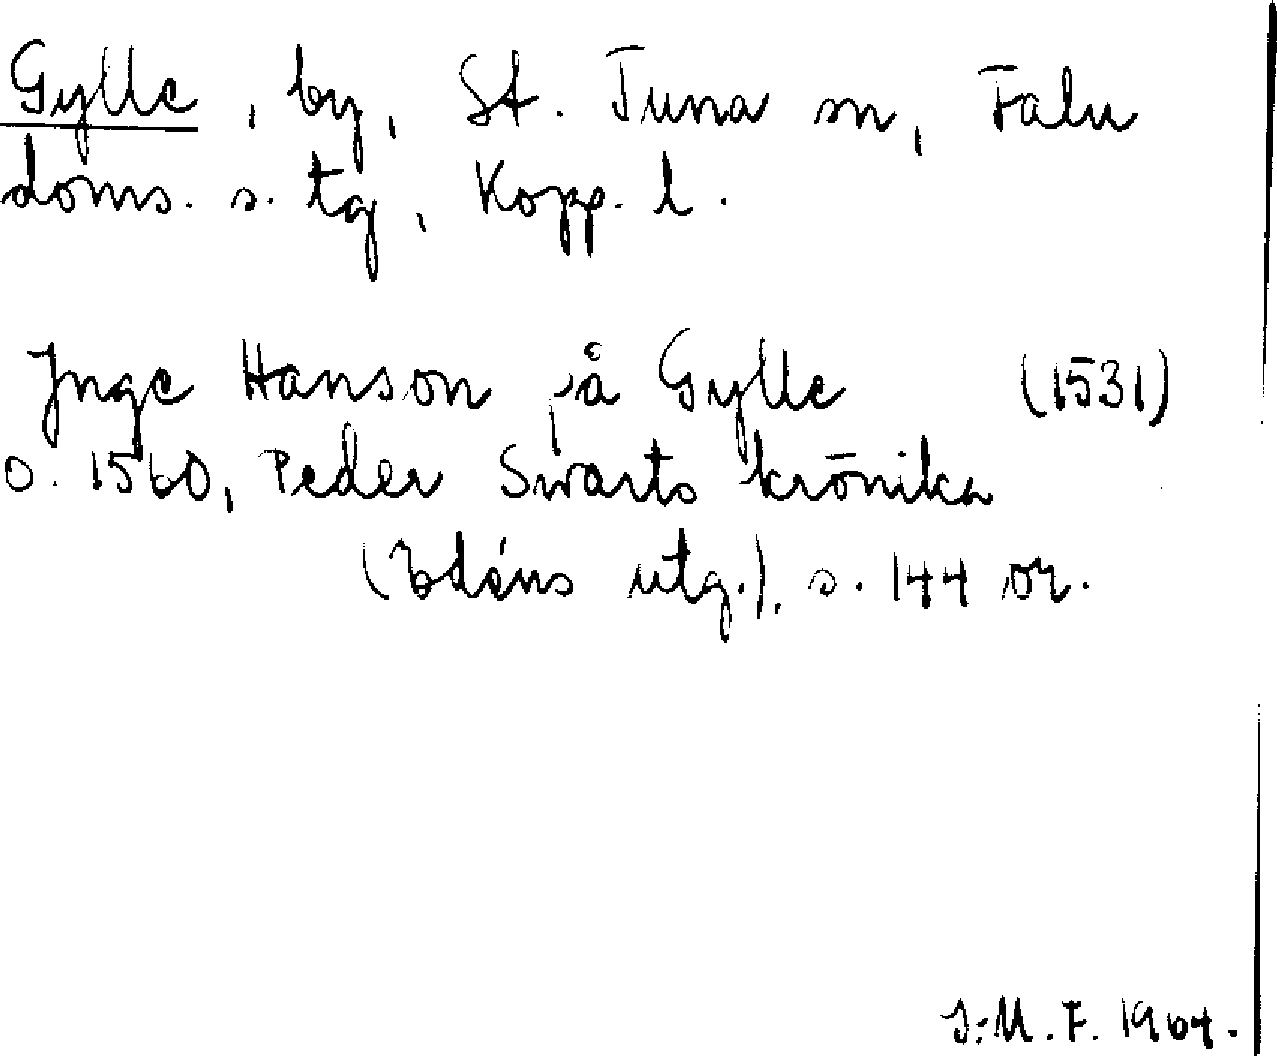 Gylle, by, St. Tuna sn, Falu
doms. s. tg, Kopp. l.
Jnge Hanson på Gylle (1531)
o. 1560, Peder Swarts krönika
(Edéns utg.), s. 144 or.
I:M.F. 1964.